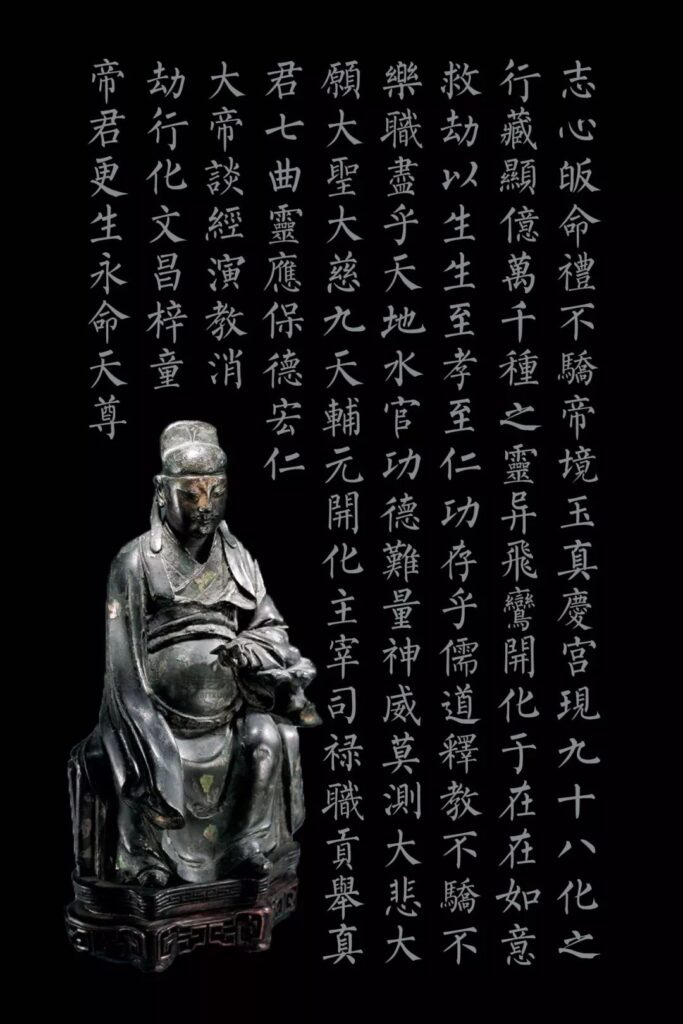 志心皈命禮不驕帝境玉真慶宫現九十八化之
行藏顯億萬千種之靈异飛鸞開化于在在如意
救劫以生生至孝至仁功存乎儒道釋教不驕不
樂職盡乎天地水官功德難量神威莫測大悲大
願大聖大慈九天輔元開化主宰司禄職貢舉真
君七曲靈應保德宏仁
大帝談經演教消
劫行化文昌梓童
帝君更生永命天尊